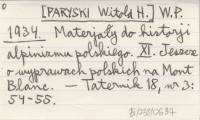 [PARYSKI Witold H.] W.P.
1934. Materjały do historji
alpinizmu polskiego. XI. Jeszcze
o wyprawach polskich na Mont
Blanc. — Taternik 18, nr 3:
54-55.